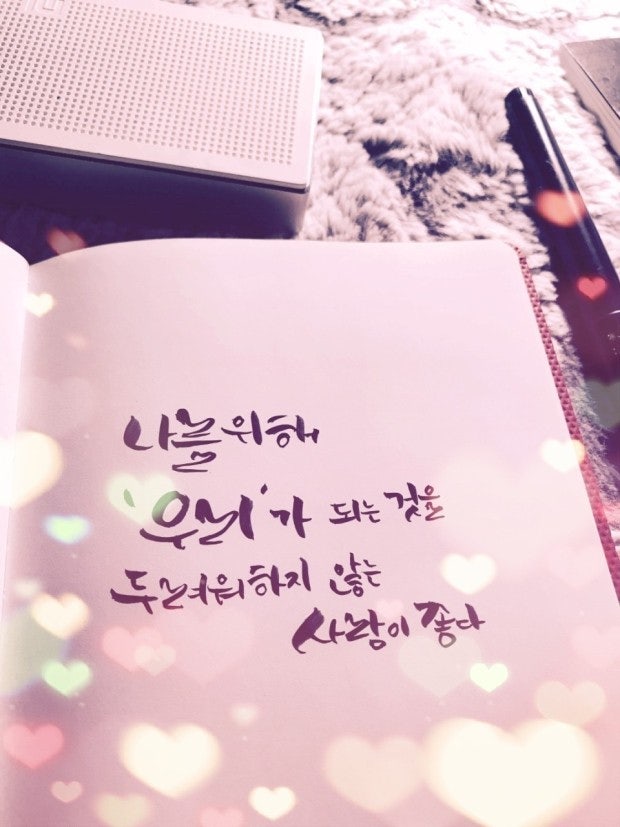 나를위해
'우리'가 되는것을
두려워하지 않는
사람이 좋다